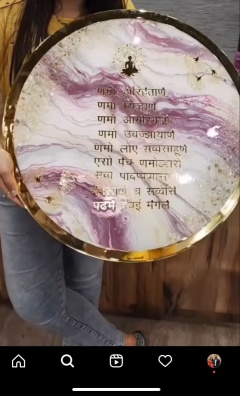 णमो अरिहंताणं
णमो सिद्धाणं
णमो आयरियाणं
णमो उवज्झायाणं
णमो लोए सव्वसाहूणं
एसो पंच णमोक्कारो
सव्व
च सव्वेसिं
पढमं हवई मंगलं